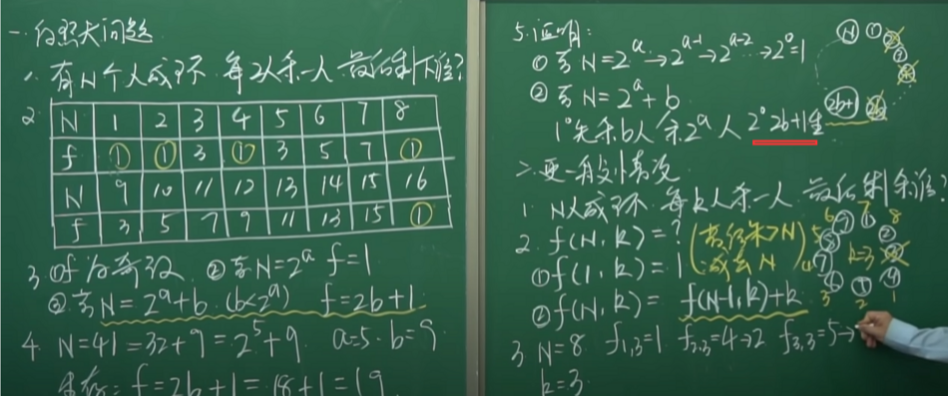 一.约瑟夫问题
1. 有N个人成环 每2人杀一人 最后剩下谁?
2.
N 1 2 3 4 5 6 7 8
f ① ① 3 ① 3 5 7 ①
N 9 10 11 12 13 14 15 16
f 3 5 7 9 11 13 15 ①
3. ①f为奇数 ②若N=2ᵃ f=1
③若N=2ᵃ+b (b<2ᵃ) f=2b+1
4. N=41=32+9=2⁵+9 a=5. b=9
f=2b+1=18+1=19
5.证明:
①若N=2ᵃ→2ᵃ⁻¹→2ᵃ⁻²→2⁰=1
②若N=2ᵃ+b
1°先杀b人 余2ᵃ人 2°2b+1生
N 1 2 3 4
2b+1 2b
二.更一般的情况
1. N人成环 每k人杀一人 最后剩余谁?
2. f(N,k)=? (若结果>N 减去N)
①f(1,k)=1
②f(N,k)= f(N-1,k)+k
k=3
3. N=8 f1,3=1 f2,3=4→2 f3,3=5→
k=3